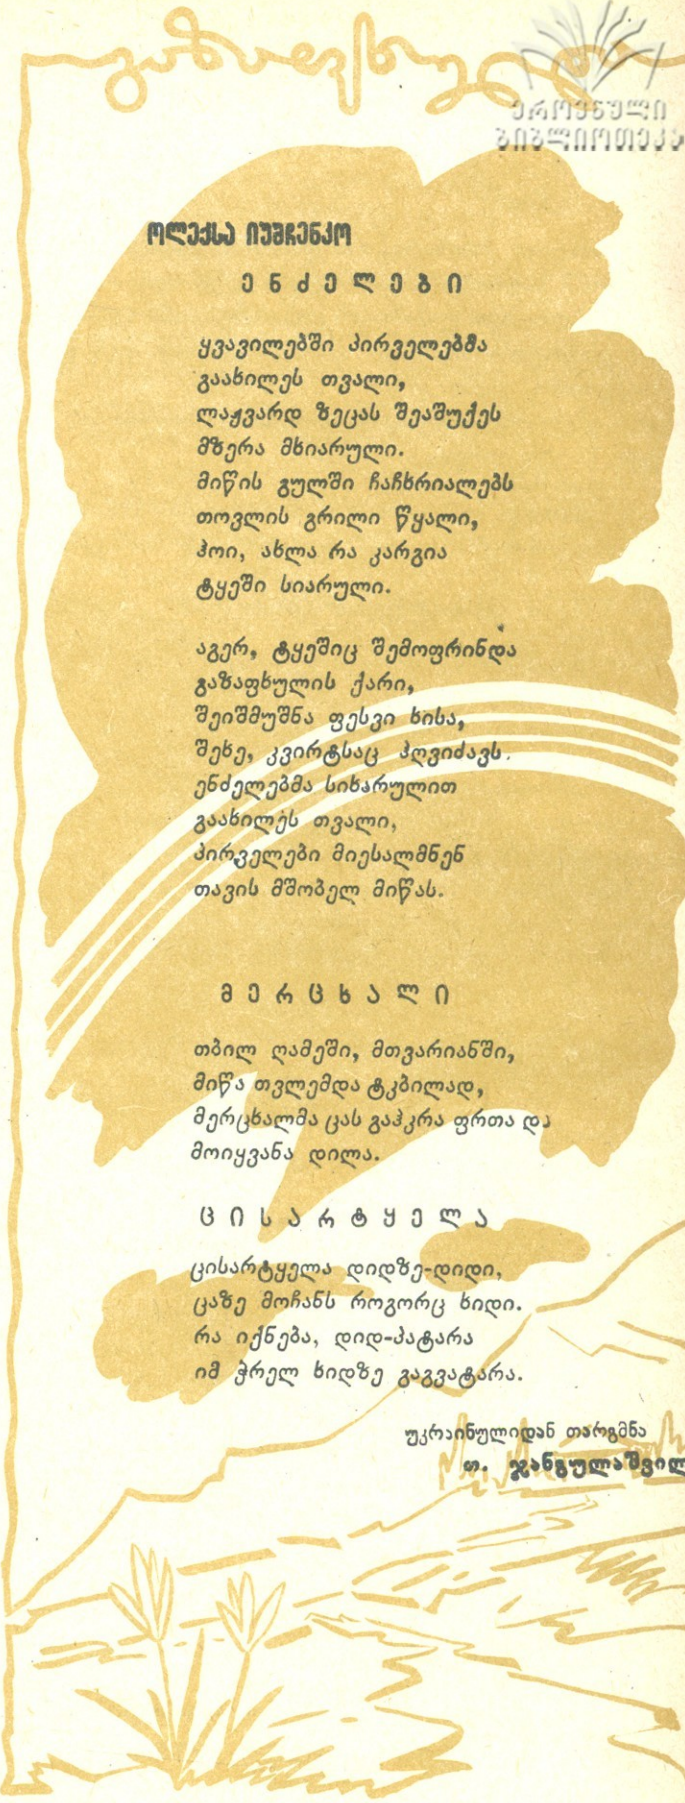 გაზაფხული
ეროვნული
ბიბლიოთეკა
ოლექსა იუშჩენკო
ენძელები
ყვავილებში პირველებმა
გაახილეს თვალი,
ლაჟვარდ ზეცას შეაშუქეს
მზერა მხიარული.
მიწის გულში ჩაჩხრიალებს
თოვლის გრილი წყალი,
ჰოი, ახლა რა კარგია
ტყეში სიარული.
აგერ, ტყეშიც შემოფრინდა
გაზაფხულის ქარი,
შეიშმუშნა ფესვი ხისა,
შეხე, კვირტსაც ჰღვიძავს.
ენძელებმა სიხარულით
გაახილეს თვალი,
პირველები მიესალმნენ
თავის მშობელ მიწას.
მერცხალი
თბილ ღამეში, მთვარიანში,
მიწა თვლემდა ტკბილად,
მერცხალმა ცას გაჰკრა ფრთა და
მოიყვანა დილა.
ცისარტყელა
ცისარტყელა დიდზე-დიდი,
ცაზე მოჩანს როგორც ხიდი.
რა იქნება, დიდ-პატარა
იმ ჭრელ ხიდზე გაგვატარა.
უკრაინულიდან თარგმნა
თ. ჯანგულაშვილ